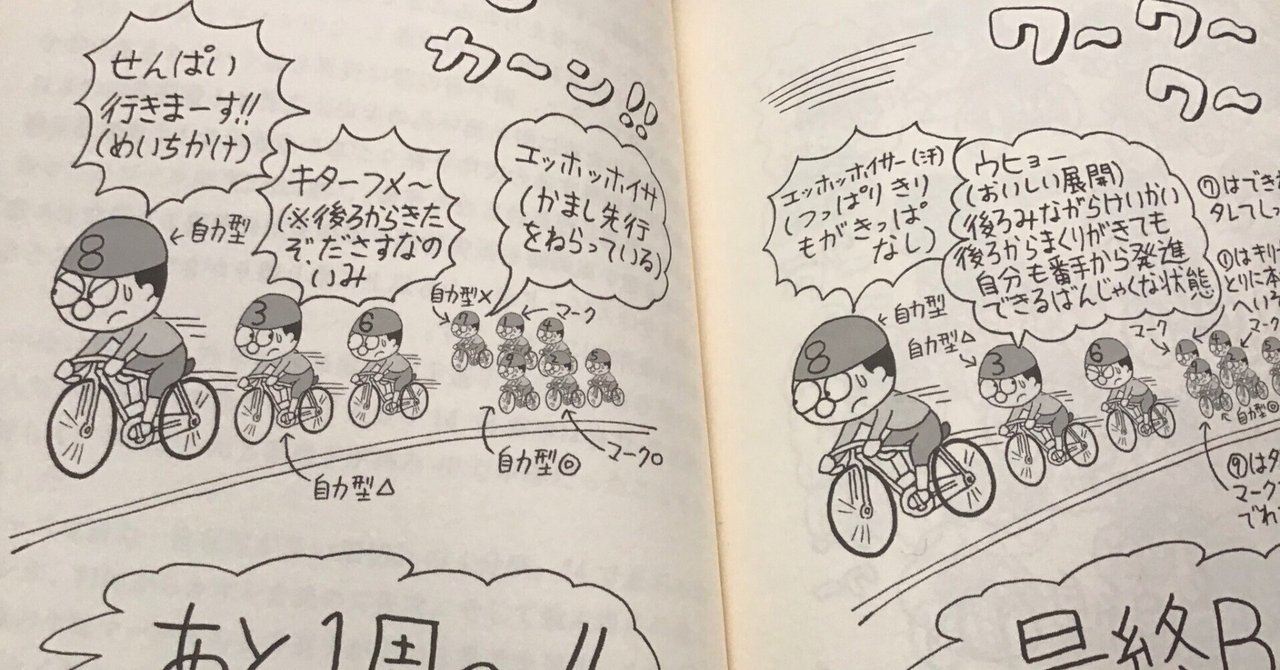 カーン!!
せんぱい
行きまーす!!
(めいちかけ)
←自力型
キターフメ～
(※後ろからきた
ぞ、ださすなの
いみ
エッホッホイサ
(かまし先行
をねらっている)
自力型×
マーク
8
3
6
7
4
9
2
5
自力型△
自力型◎
マーク○
あと1周
ワーワー
ワー
エッホッホイサー(汗)
(つっぱりきり
もがきっぱ
なし)
ウヒョー
(おいしい展開)
後ろみながらけいかい
後ろからまくりがきても
自分も番手から発進
できるばんじゃくな状態
←自力型
自力型△
マーク
8
3
6
⑦はでき
タレてし
①はキリ
とりに本
へい
マーク
自力型◎
⑨はタ
マーク
でれ
最終B